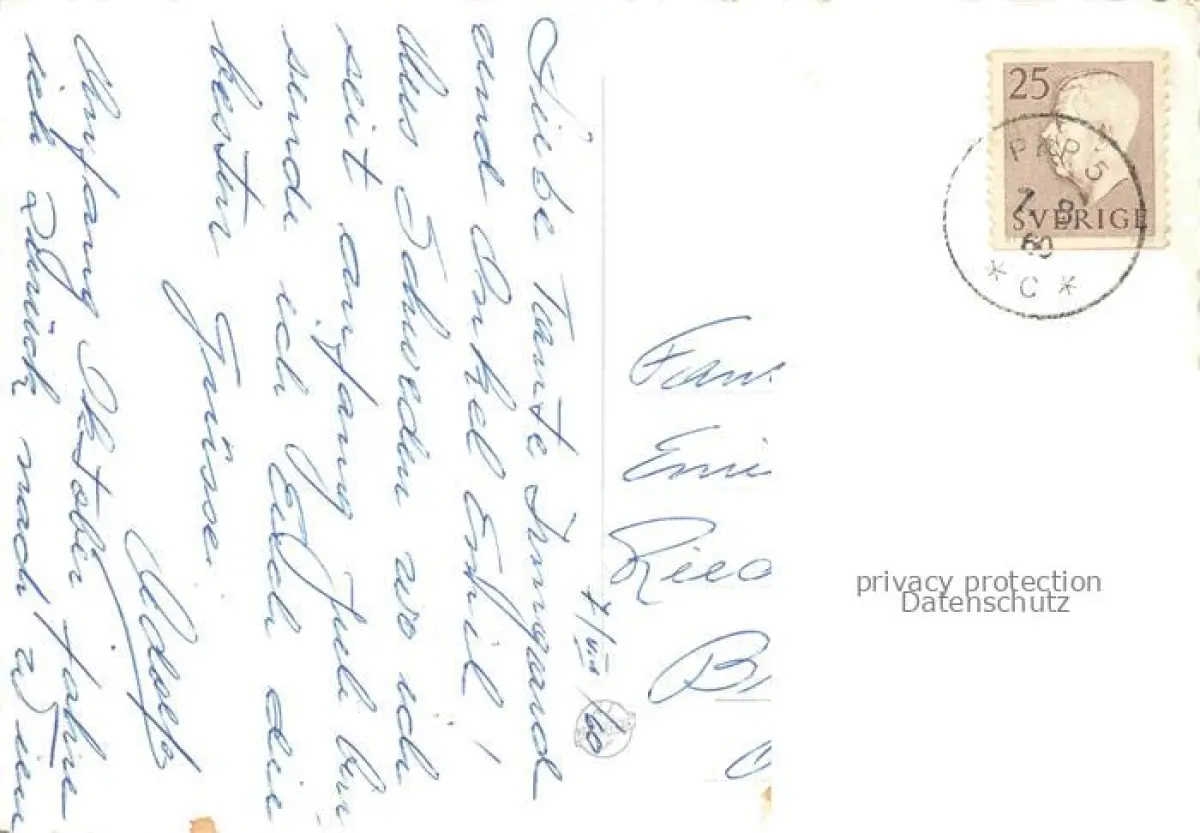 7/VIII/60
Liebe Tante Irmgard
und Onkel Emil!
Aus Schweden wo ich
seit anfang Juli bin
sende ich Euch die
besten Grüsse.
Adolf
Anfang Oktober fahre
ich zurück nach Wien
25
SVERIGE
PKP 5
7. 8
60
* C *
Fam
Emi
B
privacy protection
Datenschutz